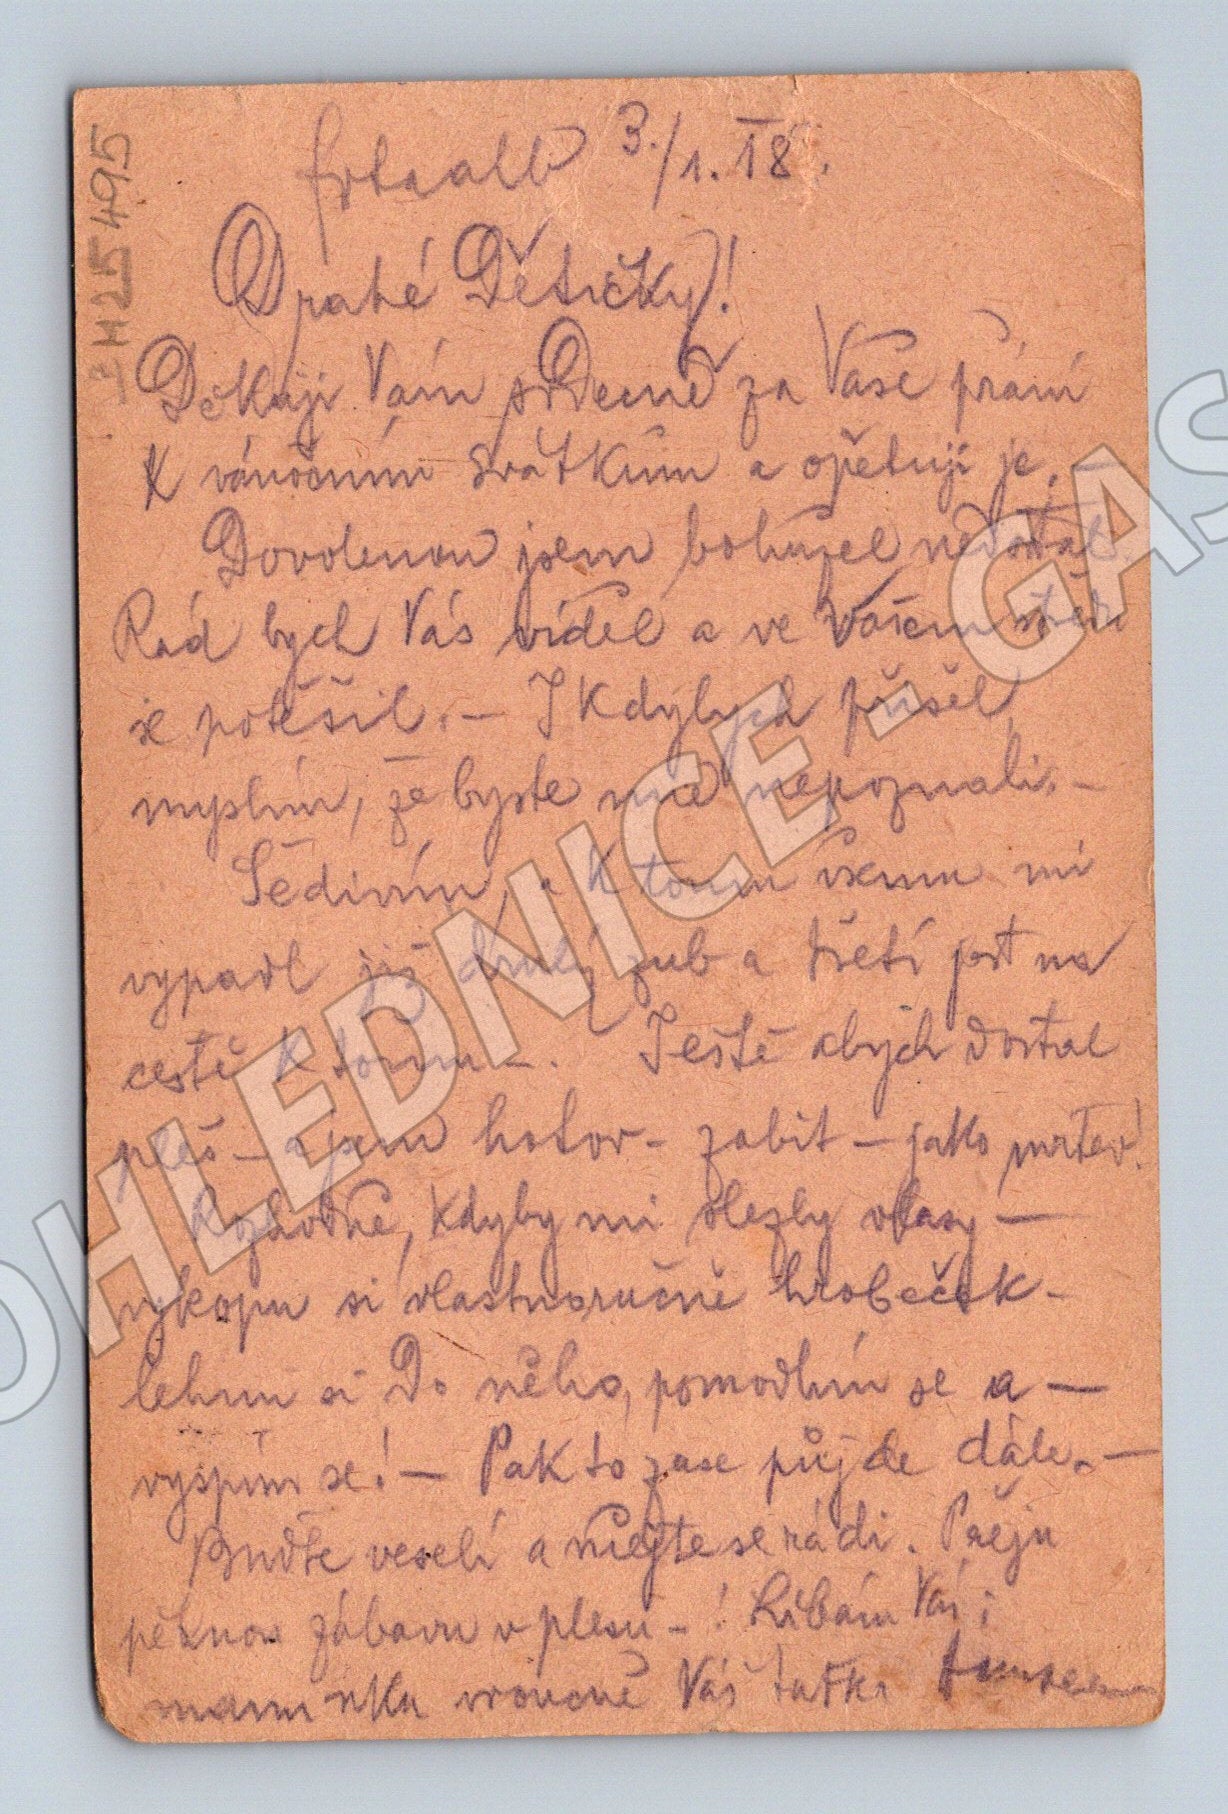 3./1. 18.
Drahé Dětičky!
Děkuji Vám srdečně za Vaše přání
K vánočním svátkům a opětuji je. –
Dovolenou jsem bohužel nedostal.
Rád bych Vás viděl a ve Vašem středu
se potěšil. – I Kdybych přišel,
myslím, že byste mně nepoznali. –
Šedivím, a K tomu všemu mi
vypadl již druhý zub a třetí jest na
cestě K tomu –. Ještě abych dostal
pleš – a jsem hotov – zabit – jako mrtev!
Rozhodně, Kdyby mi slezly vlasy –
vykopu si vlastnoručně hrobeček –
lehnu si Do něho, pomodlím se a –
vyspím se! – Pak to zase půjde dále. –
Buďte veselí a mějte se rádi. Přeju
pěknou zábavu v plesu – ! Líbám Vás i
maminku vroucně Váš taťka
ZM25495
POHLEDNICE - GAS